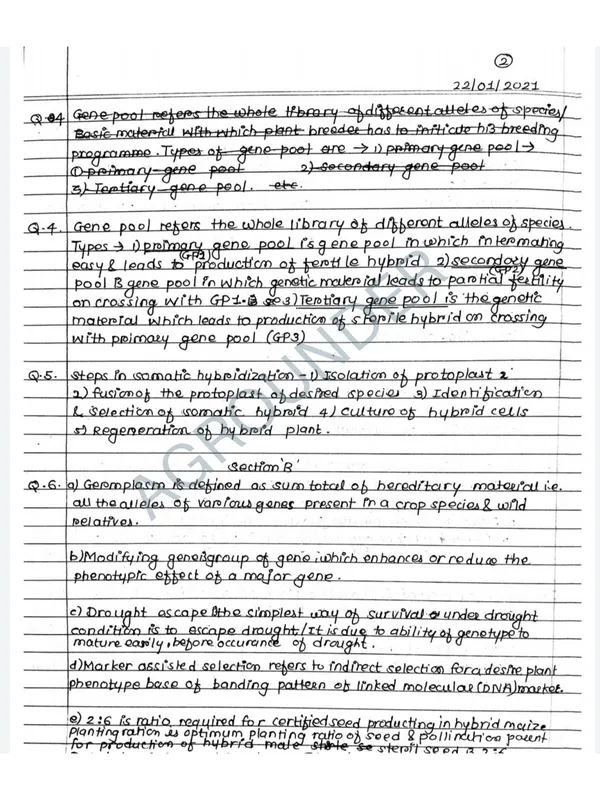 2
22/01/2021
Q.04 Genepool refers the whole library of different alleles of species/
Basic material with which plant breeder has to initicate his breeding
programme. Types of gene pool are → 1) primary gene pool →
1) primary gene pool 2) secondary gene pool
3) Tertiary gene pool. etc.
Q.4. Gene pool refers the whole library of different alleles of species.
Types → 1) primary gene pool is gene pool in which intermating
easy & leads to (GP1) production of fertile hybrid 2) secondary gene
pool is gene pool in which genetic material leads to partial (GP2) fertility
on crossing with GP1. 3) Tertiary gene pool is the genetic
material which leads to production of sterile hybrid on crossing
with primary gene pool (GP3)
Q.5. Steps in somatic hybridization - 1) Isolation of protoplast 2
2) fusion of the protoplast of desired species 3) Identification
& selection of somatic hybrid 4) culture of hybrid cells
5) Regeneration of hybrid plant.
Section 'B'
Q.6. a) Germplasm is defined as sum total of hereditary material i.e.
all the alleles of various genes present in a crop species & wild
relatives.
b) Modifying gene is group of gene, which enhances or reduce the
phenotypic effect of a major gene.
c) Drought escape the simplest way of survival under drought
condition is to escape drought/It is due to ability of genotype to
mature easily, before occurance of drought.
d) Marker assisted selection refers to indirect selection for a desire plant
phenotype base of banding pattern of linked molecular (DNA) marker.
e) 2:6 is ratio required for certified seed producting in hybrid maize.
planting ration is optimum planting ratio of seed & pollination parent
for production of hybrid male steril seed is 2:6
AGROUNDER